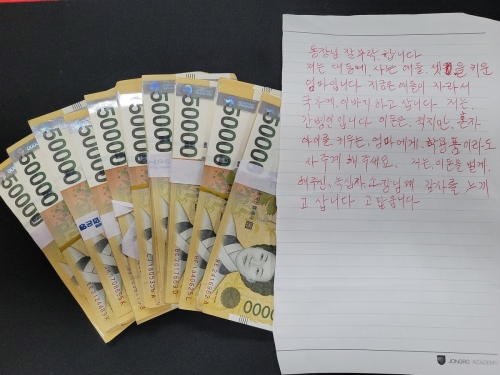 50000
50000
50000
50000
50000
50000
50000
50000
50000
동장님 잘부탁 합니다
저는 대동에 사는 애들, 셋을 키운
엄마입니다 지금은 애들이 자라서
국가에, 이바지 하고 삽니다 저는,
간병인입니다 이돈은, 적지만, 혼자
아이를 키우는, 엄마에게, 학용품이라도
사주게 해 주세요. 저는, 이돈을 벌게,
고 삽니다 고맙습니다
JONGRO ACADEMY